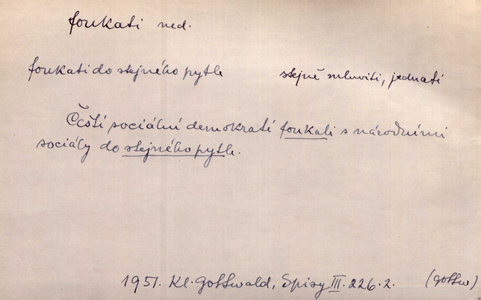 foukati ned.
foukati do stejného pytle stejně mluviti, jednati
Čeští sociální demokrati foukali s národními
sociály do stejného pytle.
1951. Kl. Gottwald, Spisy III. 226. 2. (Gottw)